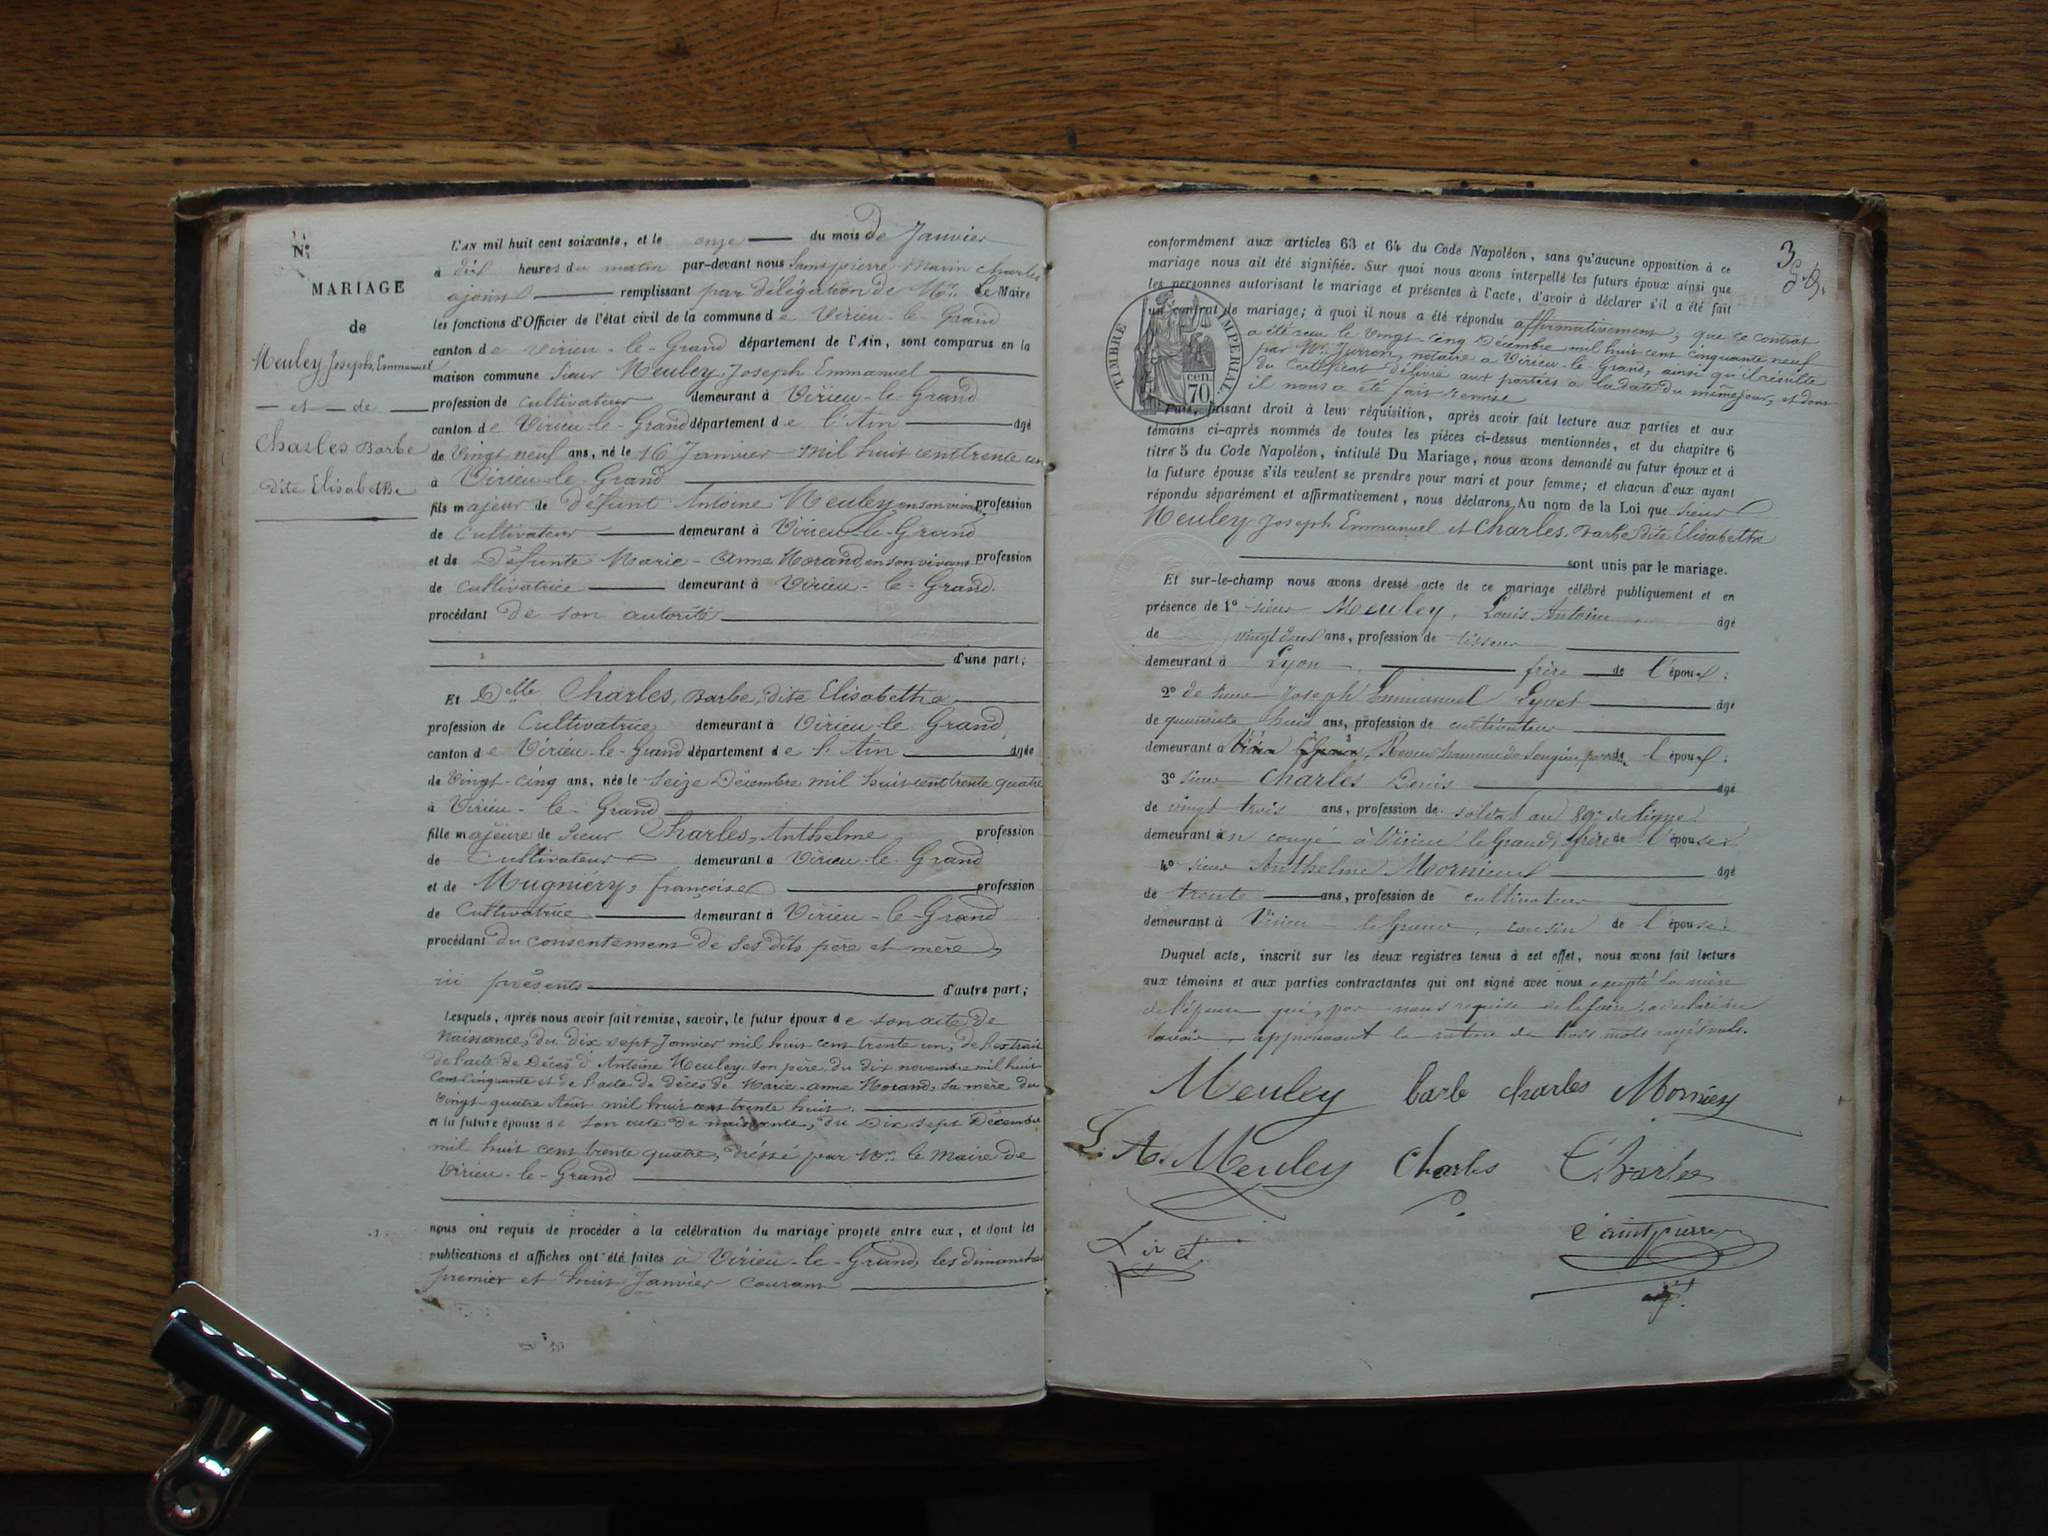 N.
MARIAGE
de
Meuley Joseph Emmanuel
et de
Charles Barbe
dite Elisabethe
L'AN mil huit cent soixante, et le onze du mois de Janvier
à dix heures du matin par-devant nous Saintpierre Marin Charles
ajoint remplissant par délégation de Mr. le Maire
les fonctions d'Officier de l'état civil de la commune de Virieu-le-Grand
canton de Virieu-le-Grand département de l'Ain, sont comparus en la
maison commune Sieur Meuley Joseph Emmanuel
profession de cultivateur demeurant à Virieu-le-Grand
canton de Virieu-le-Grand département de l'Ain âgé
de Vingt neuf ans, né le 16 Janvier mil huit cent trente un
à Virieu-le-Grand
fils majeur de défunt Antoine Meuley en son vivant profession
de Cultivateur demeurant à Virieu-le-Grand
et de Défunte Marie-Anne Morand en son vivant profession
de Cultivatrice demeurant à Virieu-le-Grand.
procédant de son autorité
d'une part;
Et Delle Charles, Barbe, dite Elisabethe
profession de Cultivatrice demeurant à Virieu-le Grand,
canton de Virieu-le-Grand département de l'Ain âgée
de Vingt-cinq ans, née le seize Décembre mil huit cent trente quatre
à Virieu-le-Grand
fille majeure de Sieur Charles, Anthelme profession
de Cultivateur demeurant à Virieu-le-Grand
et de Mugniéry, françoise profession
de Cultivatrice demeurant à Virieu-le-Grand
procédant du consentement de ses dits père et mère,
ici présents d'autre part;
Lesquels, après nous avoir fait remise, savoir, le futur époux de son acte de
Naissance, du dix sept Janvier mil huit cent trente un, de l'extrait
de l'acte de Décès d'Antoine Meuley son père, du dix novembre mil huit
Cent Cinquante et de l'acte de décès de Marie-anne Morand, sa mère du
Vingt quatre Août mil huit cent trente huit.
et la future épouse de son acte de naissance, du Dix sept Décembre
mil huit cent trente quatre, dressé par Mr. le Maire de
Virieu-le-Grand
nous ont requis de procéder à la célébration du mariage projeté entre eux, et dont les
publications et affiches ont été faites à Virieu-le-Grand, les dimanches
premier et huit Janvier courant
3
conformément aux articles 63 et 64 du Code Napoléon, sans qu'aucune opposition à ce
mariage nous ait été signifiée. Sur quoi nous avons interpellé les futurs époux ainsi que
les personnes autorisant le mariage et présentes à l'acte, d'avoir à déclarer s'il a été fait
un contrat de mariage; à quoi il nous a été répondu affirmativement; que ce contrat
a été reçu le vingt cinq Décembre mil huit cent cinquante neuf
par Mr. Jurron, notaire à Virieu-le-Grand, ainsi qu'il résulte
du Certificat délivré aux parties à la date du même jour, et dont
il nous a été fait remise
TIMBRE IMPERIAL
70 cen.
Puis, faisant droit à leur réquisition, après avoir fait lecture aux parties et aux
témoins ci-après nommés de toutes les pièces ci-dessus mentionnées, et du chapitre 6
titre 5 du Code Napoléon, intitulé Du Mariage, nous avons demandé au futur époux et à
la future épouse s'ils veulent se prendre pour mari et pour femme; et chacun d'eux ayant
répondu séparément et affirmativement, nous déclarons Au nom de la Loi que sieur
Meuley Joseph Emmanuel et Charles Barbe dite Elisabethe
sont unis par le mariage.
Et sur-le-champ nous avons dressé acte de ce mariage célébré publiquement et en
présence de 1° sieur Meuley, Louis Antoine âgé
de vingt deux ans, profession de tisseur
demeurant à Lyon, frère de l'époux;
2° de sieur Joseph Emmanuel Lyvet âgé
de quarante huit ans, profession de cultivateur
demeurant à Romeu hameau de Songieu de l'époux;
3° sieur Charles Denis âgé
de vingt trois ans, profession de soldat au 89e de ligne
demeurant en congé à Virieu le Grand, frère de l'épouse;
4° sieur Anthelme Mornieux âgé
de trente ans, profession de cultivateur
demeurant à Virieu le Grand, cousin de l'épouse.
Duquel acte, inscrit sur les deux registres tenus à cet effet, nous avons fait lecture
aux témoins et aux parties contractantes qui ont signé avec nous excepté la mère
de l'épouse qui, par nous requise de le faire, a déclaré ne
savoir. approuvant la rature de trois mots rayés nuls.
Meuley barb charles Mornieux
L. A. Meuley Charles Charles
Saintpierre
adj.